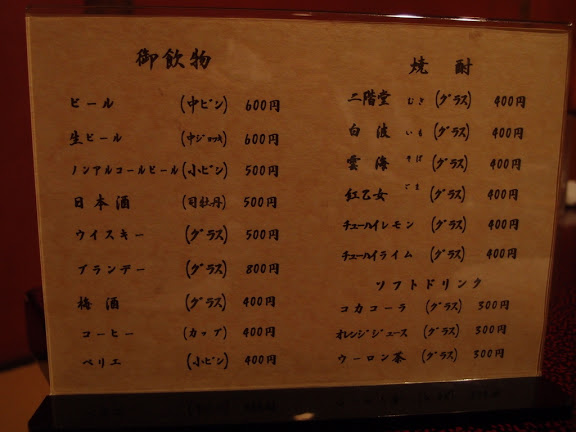 御飲物
ビール (中ビン) 600円
生ビール (中ジョッキ) 600円
ノンアルコールビール (小ビン) 500円
日本酒 (司牡丹) 500円
ウイスキー (グラス) 500円
ブランデー (グラス) 800円
梅酒 (グラス) 400円
コーヒー (カップ) 400円
ペリエ (小ビン) 400円
焼酎
二階堂 むぎ (グラス) 400円
白波 いも (グラス) 400円
雲海 そば (グラス) 400円
紅乙女 ごま (グラス) 400円
チューハイレモン (グラス) 400円
チューハイライム (グラス) 400円
ソフトドリンク
コカコーラ (グラス) 300円
オレンジジュース (グラス) 300円
ウーロン茶 (グラス) 300円